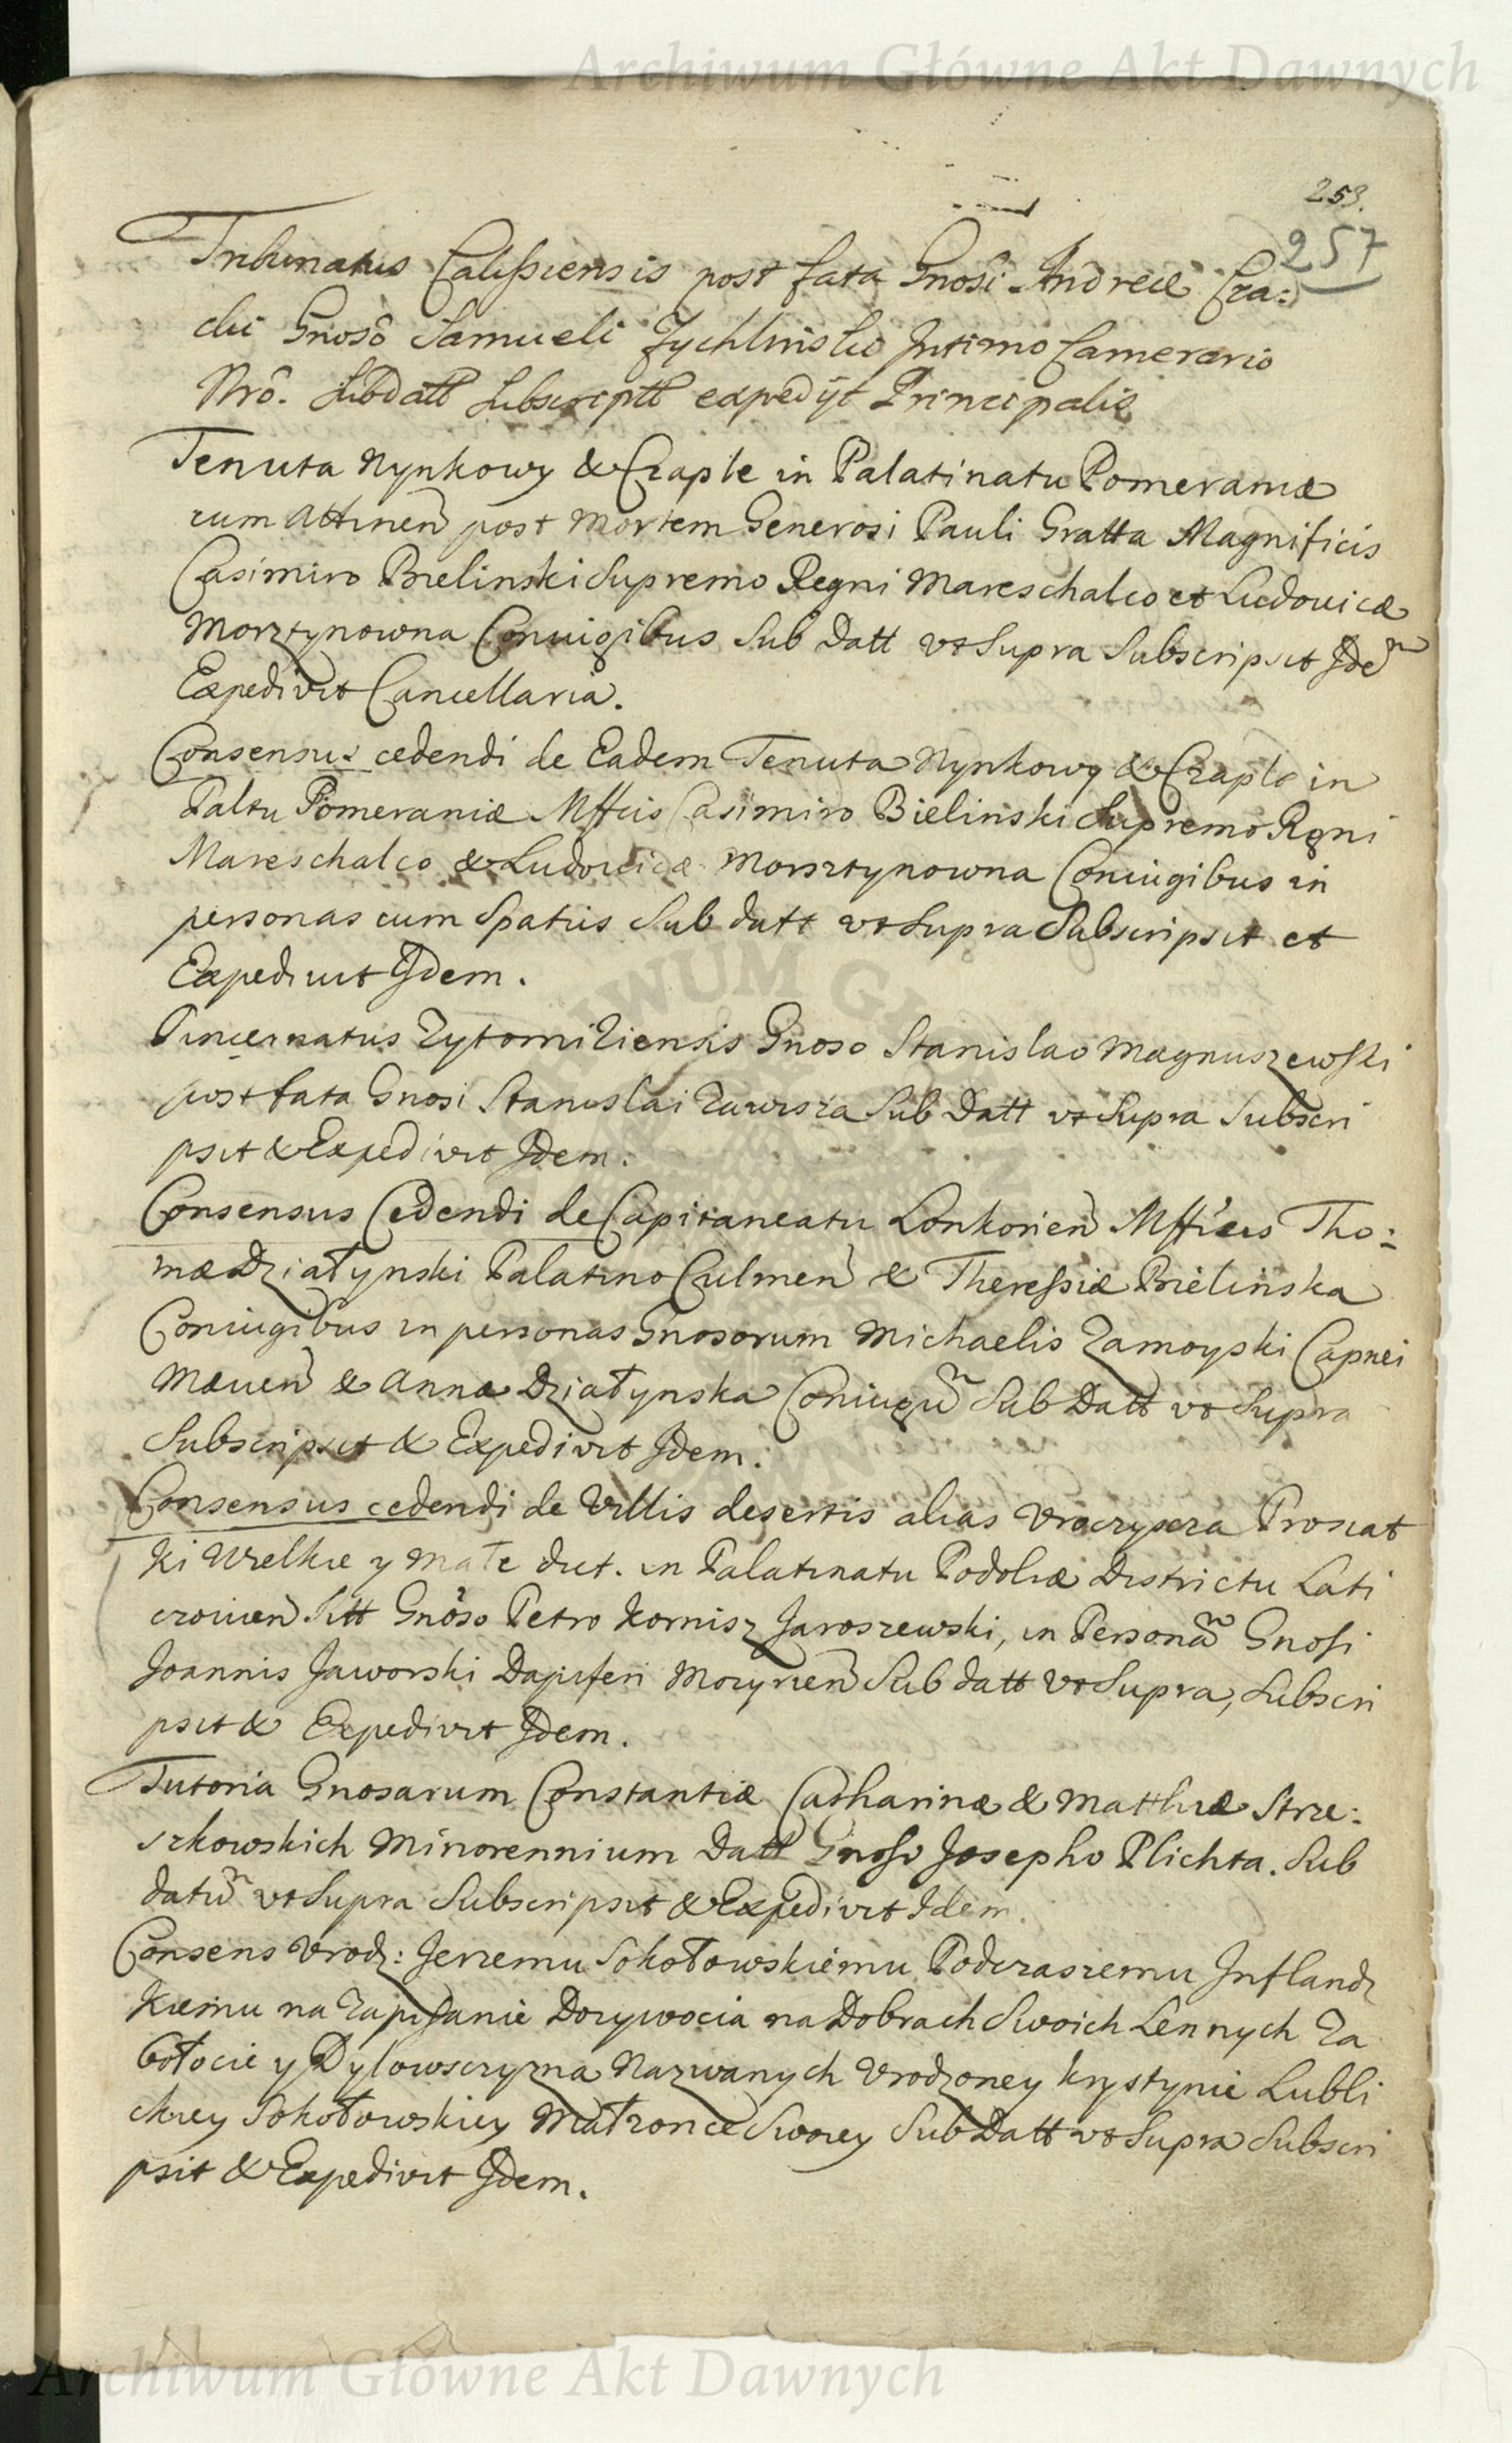 Archiwum Główne Akt Dawnych
253.
257
Tribunatus Calissiensis post fata Gnosi Andreæ Cza:
chi Gnosô Samueli Zychlinski Intimo Camerario
Nrô. Subdatt Subscriptt expedijt Principalis
Tenuta Nynkowy & Czaple in Palatinatu Pomeraniæ
cum Attinen post Mortem Generosi Pauli Gratta Magnificis
Casimiro Bielinski Supremo Regni Mareschalco et Ludovicæ
Morztynowna Coniugibus Sub Datt vt Supra Subscripsit Idem
Expedivit Cancellaria.
Consensus cedendi de Eadem Tenuta Nynkowy & Czaple in
Paltu Pomeraniæ Mffcis Casimiro Bielinski Supremo Rgni
Mareschalco & Ludovicæ Morsztynowna Coniugibus in
personas cum Spatiis Sub datt vt Supra Subscripsit et
Expedivit Idem.
Pincernatus Zytomiriensis Gnoso Stanislao Magnuszewski
post fata Gnosi Stanislai Zawisza Sub Datt vt Supra Subscri
psit & Expedivit Idem.
Consensus Cedendi de Capitaneatu Lonkorien Mffícis Tho:
mæ Działynski Palatino Culmen & Theressiæ Bielinska
Coniugibus in personas Gnosorum Michaelis Zamoyski Capnei
& Anna Działynska Coniugũ Sub Datt vt Supra
Subscripsit & Expedivit Idem.
Consensus cedendi de Villis desertis alias Vroczyscza Prosiat
ki Wielkie y Małe dict. in Palatinatu Podoliæ Districtu Lati
czovien Sitt Gnôso Petro Kornisz Jaroszewski, in Personã Gnosi
Joannis Jaworski Dapiferi Mozyrien Sub datt vt Supra, Subscri
psit & Expedivit Idem.
Tutoria Gnosarum Constantiæ Catharinæ & Matthiæ Strze:
szkowskich Minorennium Datt Gnoso Josepho Plichta. Sub
datũ vt Supra Subscripsit & Expedivit Idem.
Consens Vrodz: Jerzemu Sokołowskiemu Podczaszemu Inflandz
kiemu na Zapisanie Dozywocia na Dobrach Swoich Lennych Za
błocie y Dylowsczyzna Nazwanych Vrodzoney Krystynie Lubli
ckiey Sokołowskiey Małzonce Swoiey Sub Datt vt Supra Subscri
psit & Expedivit Idem.
Archiwum Główne Akt Dawnych